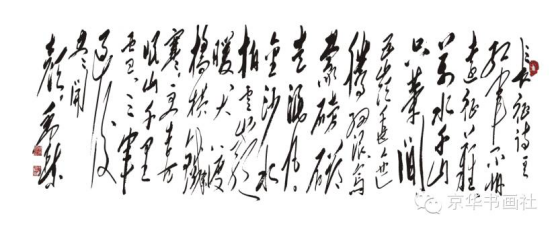 长征诗
红军不怕
远征难
万水千山
只等闲
五岭逶迤
腾细浪乌
蒙磅礴
走泥丸
金沙水
拍云崖
暖大渡
桥横铁索
寒更喜
岷山千里
雪三军
过后
尽开
颜
京华书画社